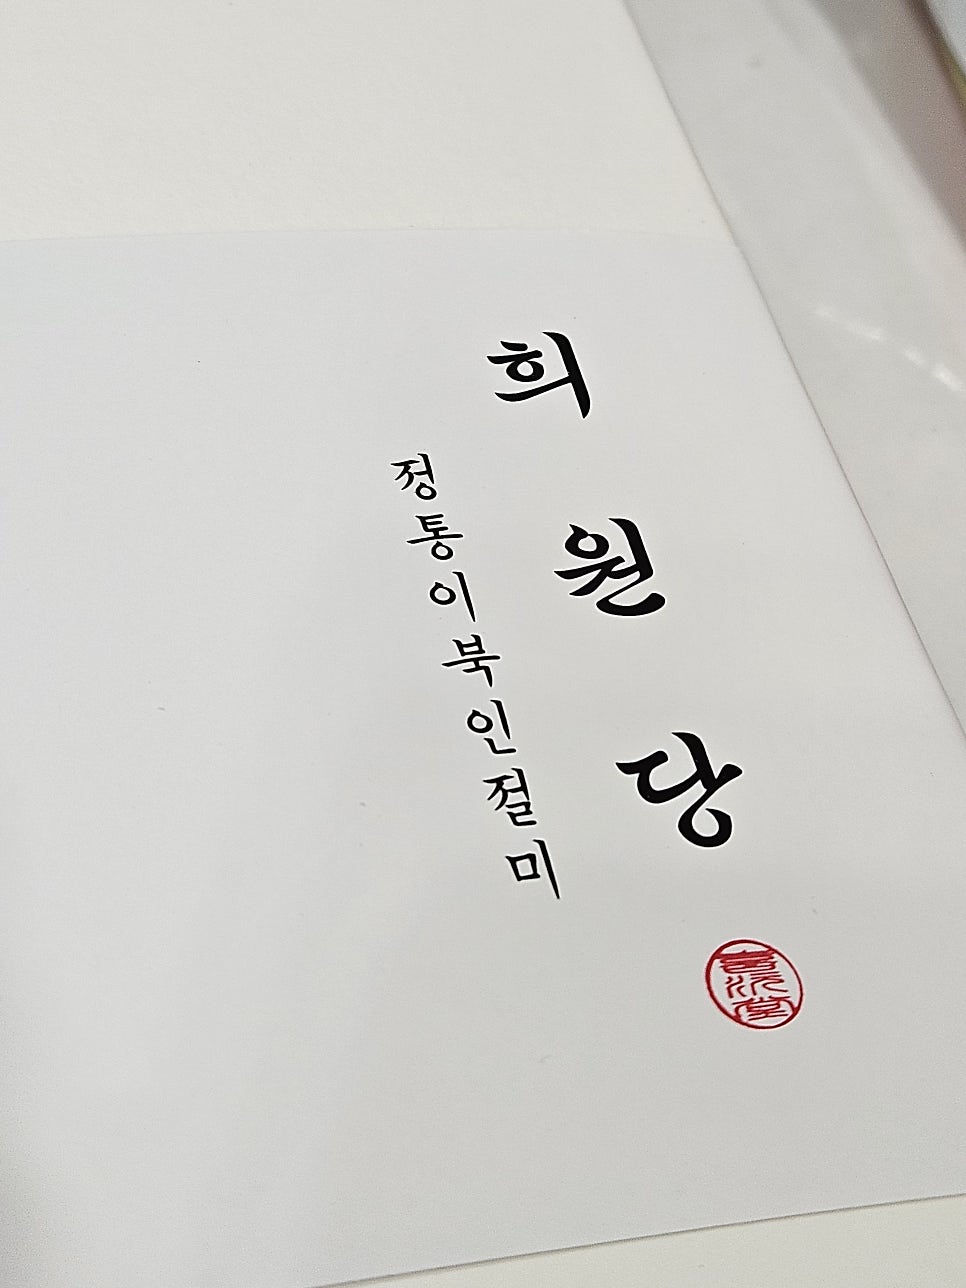 희원당
정통이북인절미
喜沅堂